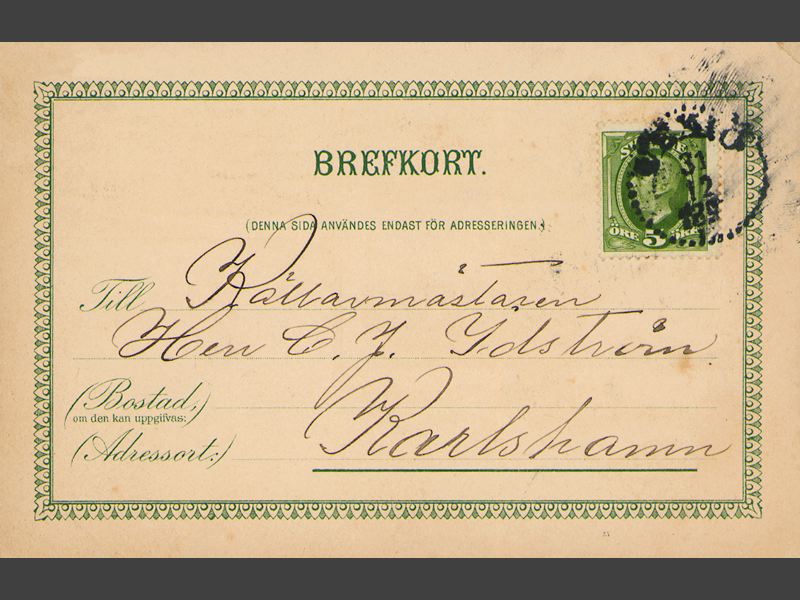 BREFKORT.
(DENNA SIDA ANVÄNDES ENDAST FÖR ADRESSERINGEN.)
31
12
ÖRE 5 ÖRE
Till Källarmästaren
Herr C. J. Ydström
(Bostad,)
om den kan uppgifvas:
Karlshamn
(Adressort:)